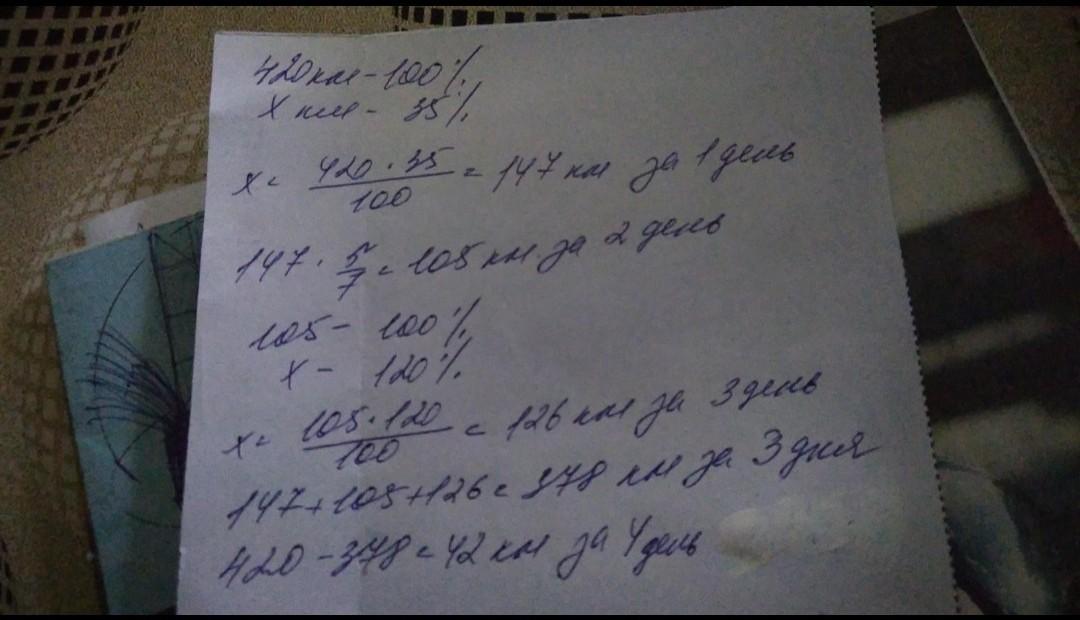 420 км - 100%
х км - 35%
х = 420 · 35 / 100 = 147 км за 1 день
147 · 5/7 = 105 км за 2 день
105 - 100%
х - 120%
х = 105 · 120 / 100 = 126 км за 3 день
147 + 105 + 126 = 378 км за 3 дня
420 - 378 = 42 км за 4 день